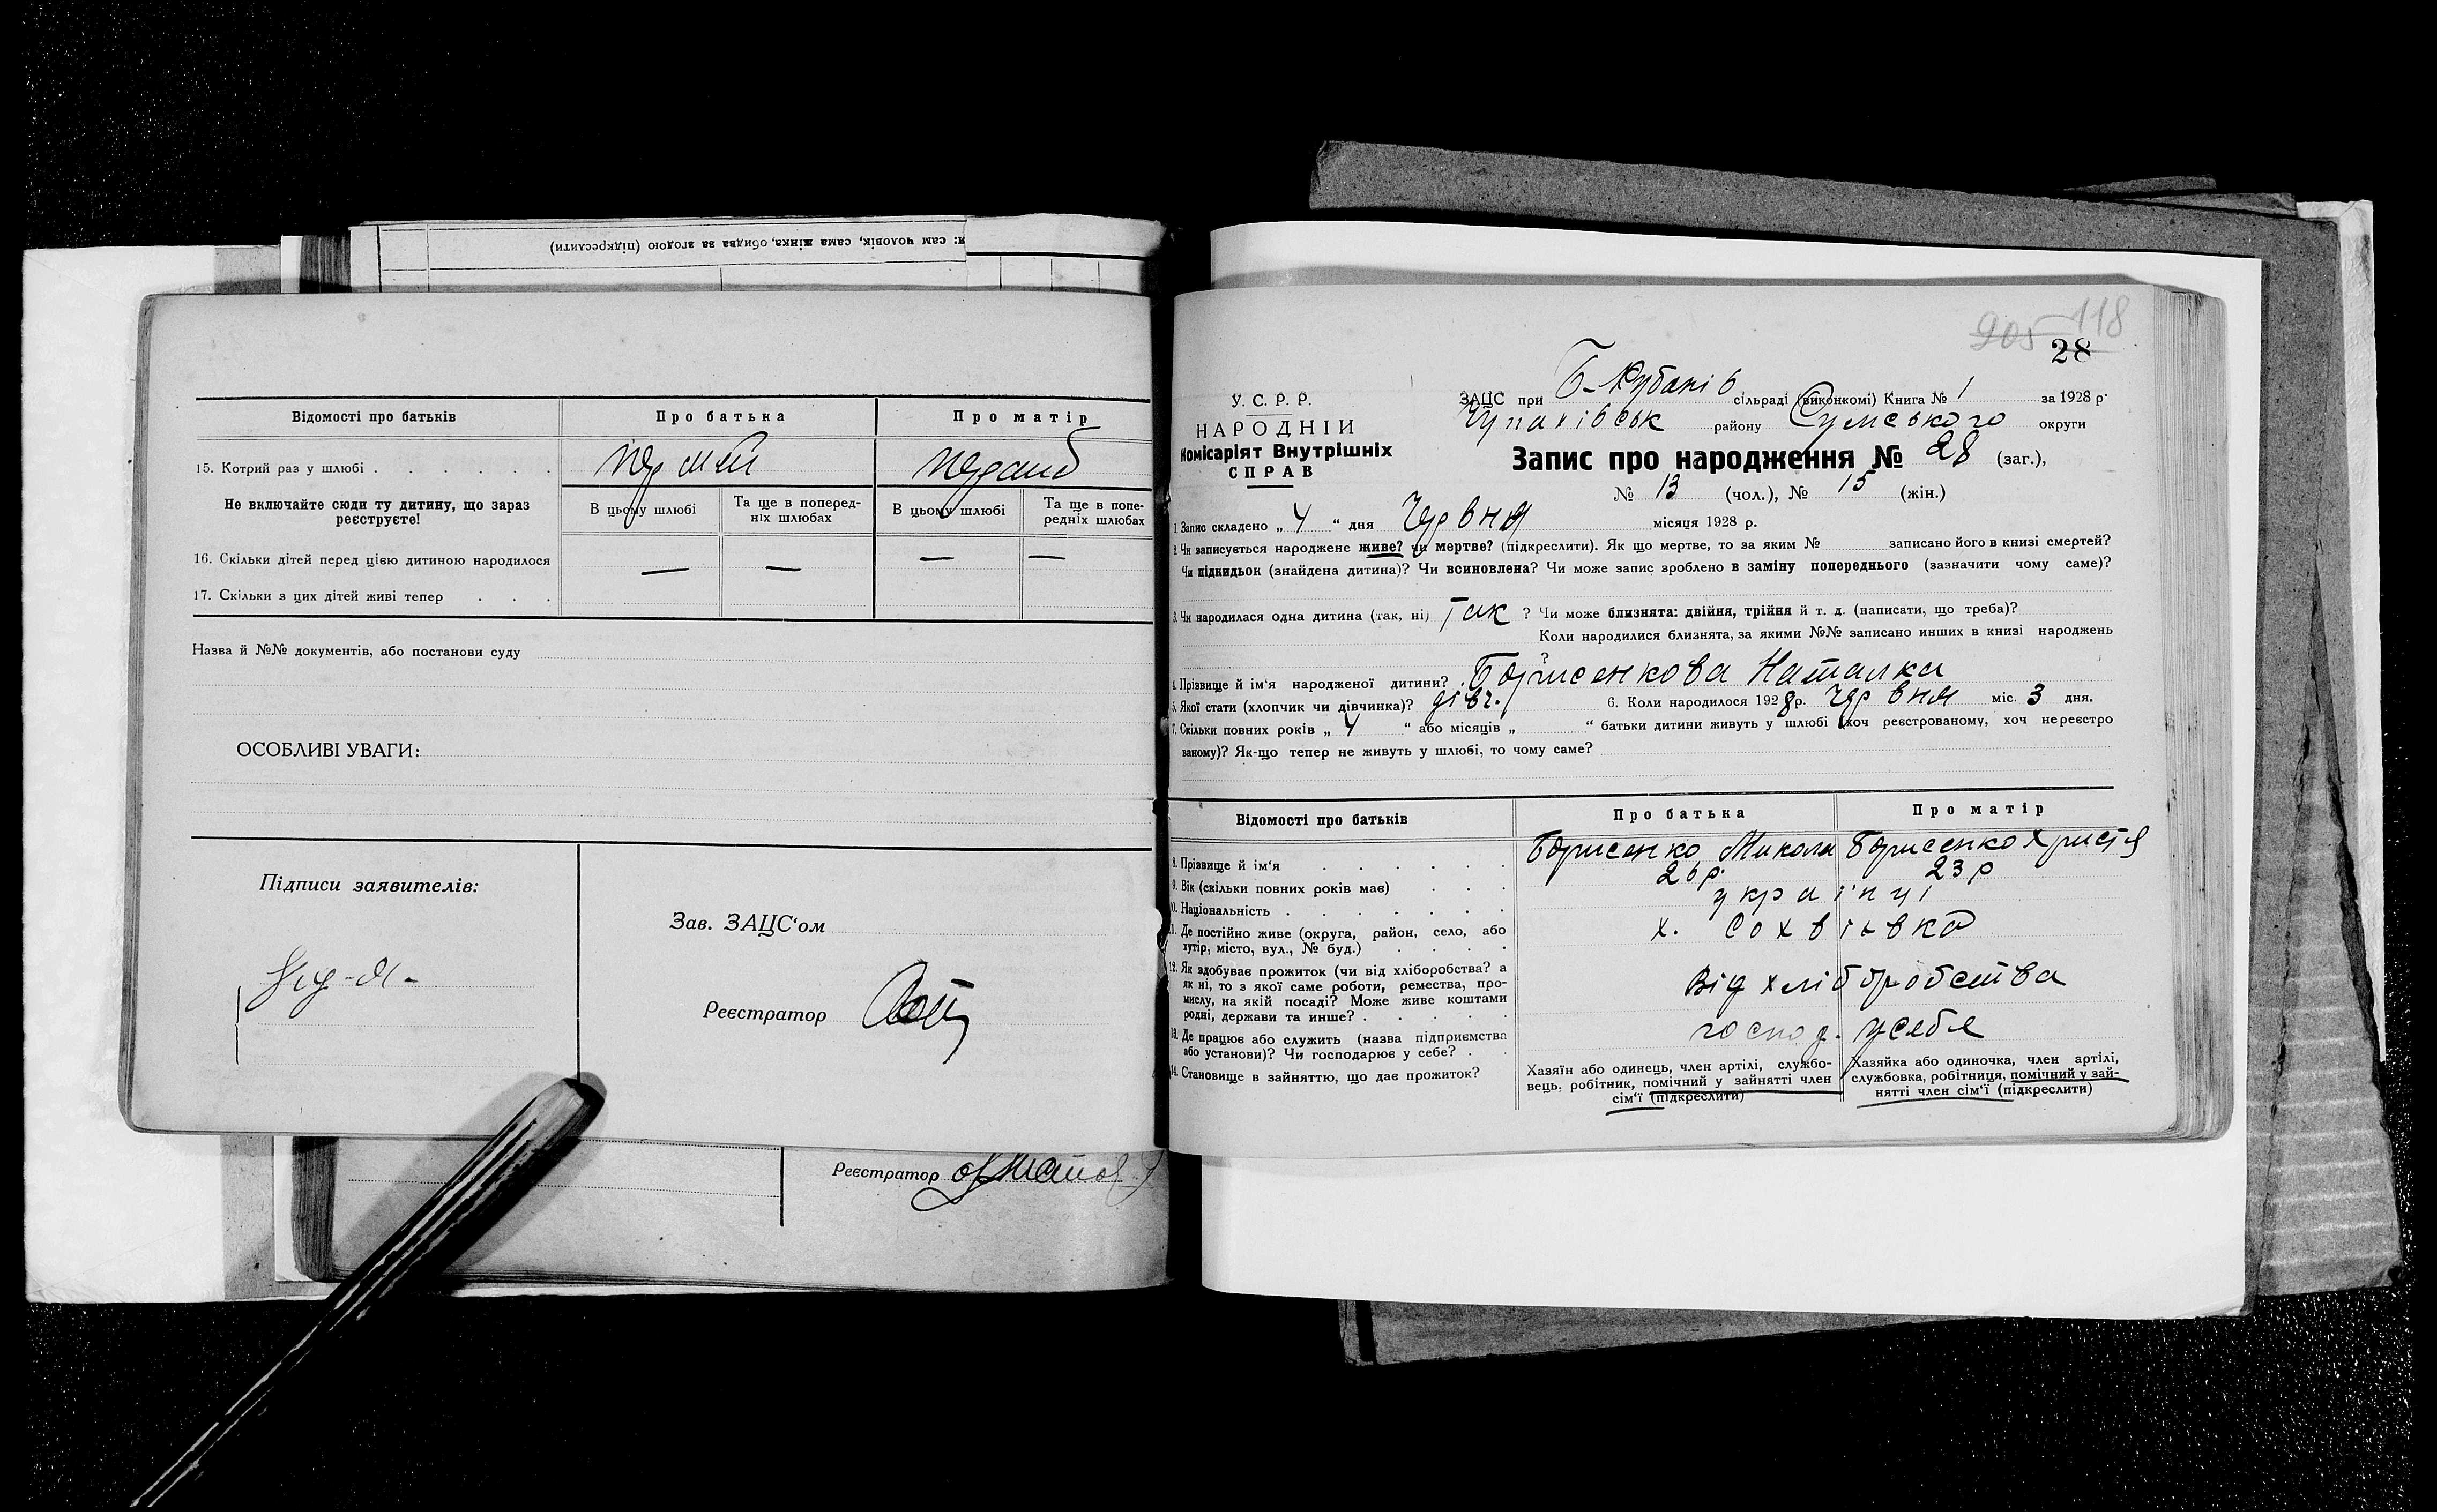 и: сам чоловік, сама жінка, обидва за згодою (підкреслити)
Відомості про батьків Про батька Про матір
15. Котрий раз у шлюбі . . . . . . перший
Не включайте сюди ту дитину, що зараз реєструєте!
В цьому шлюбі Та ще в поперед-ніх шлюбах В цьому шлюбі Та ще в попе-редніх шлюбах
16. Скільки дітей перед цією дитиною народилося — — — —
17. Скільки з цих дітей живі тепер . . .
Назва й №№ документів, або постанови суду
ОСОБЛИВІ УВАГИ:
Підписи заявителів:
Зав. ЗАЦС'ом
Реєстратор
Реєстратор
205 118
28
У. С. Р. Р.
НАРОДНІЙ
Комісаріят Внутрішніх
СПРАВ
ЗАЦС при сільраді (виконкомі) Книга № 1 за 1928 р.
району Сумського округи
Запис про народження № 28 (заг.),
№ 13 (чол.), № 15 (жін.)
1. Запис складено „ 4 “ дня Червня місяця 1928 р.
2. Чи записується народжене живе? чи мертве? (підкреслити). Як що мертве, то за яким № записано його в книзі смертей?
Чи підкидьок (знайдена дитина)? Чи всиновлена? Чи може запис зроблено в заміну попереднього (зазначити чому саме)?
3. Чи народилася одна дитина (так, ні) Так ? Чи може близнята: двійня, трійня й т. д. (написати, що треба)?
Коли народилися близнята, за якими №№ записано инших в книзі народжень
?
4. Прізвище й ім'я народженої дитини? Борисенкова Наталка
5. Якої стати (хлопчик чи дівчинка)? дівч. 6. Коли народилося 1928 р. Червня міс. 3 дня.
7. Скільки повних років „ 4 “ або місяців „ “ батьки дитини живуть у шлюбі (хоч реєстрованому, хоч нереєстро
ваному)? Як-що тепер не живуть у шлюбі, то чому саме?
Відомості про батьків Про батька Про матір
8. Прізвище й ім'я . . . . . . Борисенко Микола Борисенко Христя
9. Вік (скільки повних років має) . . . 26 р. 23 р
10. Національність . . . . . . . українці
11. Де постійно живе (округа, район, село, або х. Сохвіівка
хутір, місто, вул., № буд.) . . . .
12. Як здобуває прожиток (чи від хліборобства? а
як ні, то з якої саме роботи, ремества, про- Від хліборобства
мислу, на якій посаді? Може живе коштами
родні, держави та инше? . . . . .
13. Де працює або служить (назва підприємства господ. у себе
або установи)? Чи господарює у себе? . .
14. Становище в зайняттю, що дає прожиток?
Хазяїн або одинець, член артілі, службо-
вець, робітник, помічний у зайнятті член
сім'ї (підкреслити)
Хазяйка або одиночка, член артілі,
службовка, робітниця, помічний у зай-
нятті член сім'ї (підкреслити)